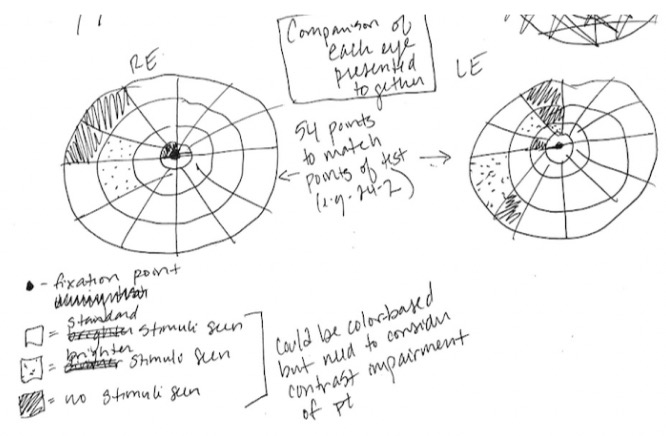 RE
Comparison of
each eye
presented
together
LE
54 points
to match
points of test
(e.g. 24-2)
- fixation point
standard
= stimuli seen
brighter
= stimuli seen
= no stimuli seen
Could be color-based
but need to consider
contrast impairment
of pt